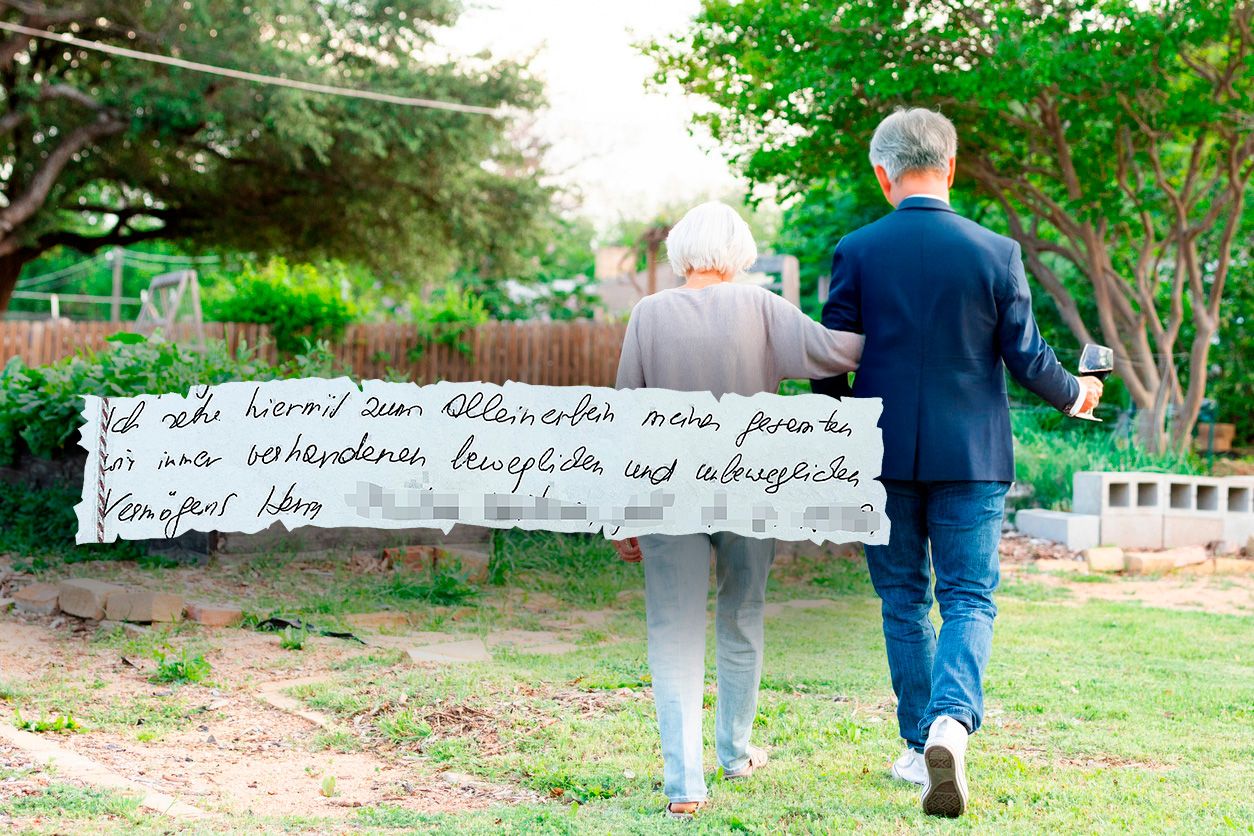 Ich setze hiermit zum Alleinerbin meines gesamten
wir immer vorhandenen beweglichen und unbeweglichen
Vermögens Herrn